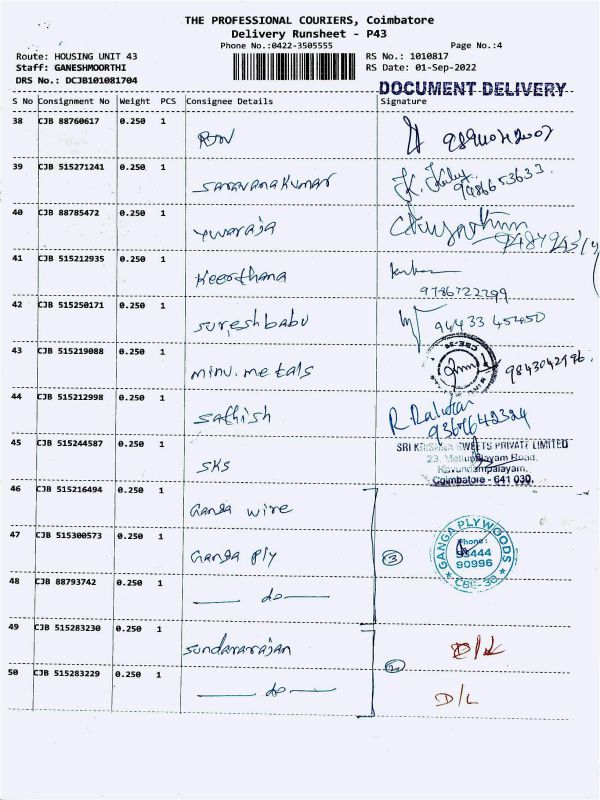 THE PROFESSIONAL COURIERS, Coimbatore
Delivery Runsheet - P43
Phone No.:0422-3505555 Page No.:4
Route: HOUSING UNIT 43 RS No.: 1010817
Staff: GANESHMOORTHI RS Date: 01-Sep-2022
DRS No.: DCJB101081704
DOCUMENT DELIVERY
S No Consignment No Weight PCS Consignee Details Signature
38 CJB 88760617 0.250 1
39 CJB 515271241 0.250 1 Saravanakumar 9486653633
40 CJB 88785472 0.250 1 Yuvaraja
41 CJB 515212935 0.250 1 Keerthana
9786722299
42 CJB 515250171 0.250 1 Sureshbabu 94433 45450
43 CJB 515219088 0.250 1 minu.metals 9843042996
44 CJB 515212998 0.250 1 Sathish
45 CJB 515244587 0.250 1 SKS
SRI KRISHNA SWEETS PRIVATE LIMITED
23, Mettupalayam Road,
Kavundampalayam,
Coimbatore - 641 030.
46 CJB 515216494 0.250 1 Ganga wire
47 CJB 515300573 0.250 1 Ganga Ply 3
GANGA PLYWOODS
Phone:
93444
90996
CBE-30
48 CJB 88793742 0.250 1 — do —
49 CJB 515283230 0.250 1 Sundararajan D/L
2
50 CJB 515283229 0.250 1 — do — D/L